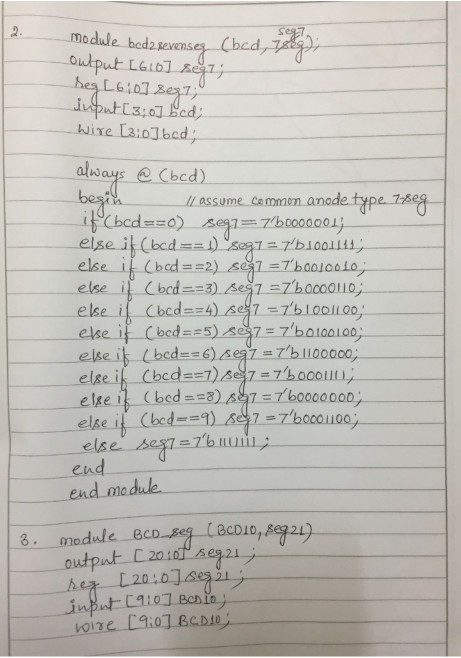 2. module bcd2sevenseg (bcd, seg7);
output [6:0] seg7;
reg [6:0] seg7;
input [3:0] bcd;
wire [3:0] bcd;
always @ (bcd)
begin // assume common anode type 7-seg
if (bcd==0) seg7 = 7'b0000001;
else if (bcd==1) seg7 = 7'b1001111;
else if (bcd==2) seg7 = 7'b0010010;
else if (bcd==3) seg7 = 7'b0000110;
else if (bcd==4) seg7 = 7'b1001100;
else if (bcd==5) seg7 = 7'b0100100;
else if (bcd==6) seg7 = 7'b1100000;
else if (bcd==7) seg7 = 7'b0001111;
else if (bcd==8) seg7 = 7'b0000000;
else if (bcd==9) seg7 = 7'b0001100;
else seg7 = 7'b1111111;
end
end module
3. module BCD_seg (BCD10, seg21)
output [20:0] seg21;
reg [20:0] seg21;
input [9:0] BCD10;
wire [9:0] BCD10;